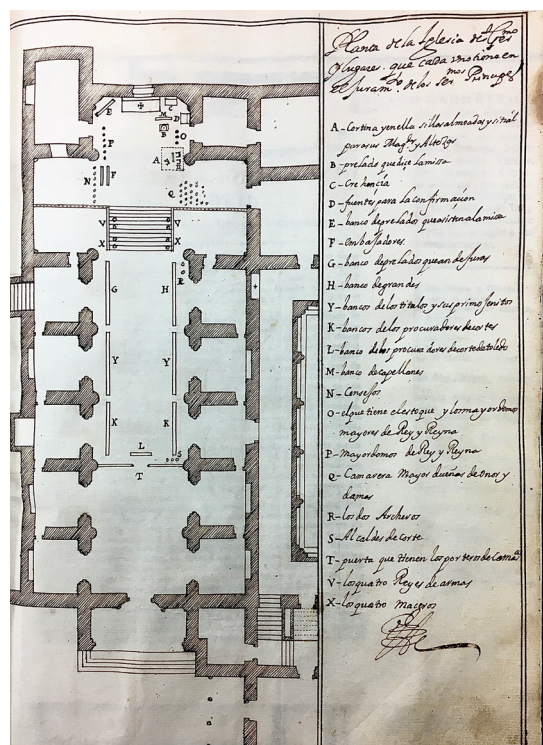 Planta de la Iglesia de S. Germo
y lugares que cada vno tiene en
el Juramto de los Sermos Principes
A - Cortina y en ella sillas almoadas y sitial
para sus Magdes y Altezas
B - prelado que dice la missa
C - Crehencia
D - fuentes para la confirmacion
E - banco de prelados que asisten a la misa
F - embajadores
G - banco de prelados que an de Jurar
H - banco de grandes
Y - bancos de los titulos y sus primojenitos
K - bancos de los procuradores de cortes
L - banco de los procuradores de corte de toledo
M - banco de capellanes
N - Consejos
O - el que tiene el estoque y los mayordomos
mayores de Rey y Reyna
P - Mayordomos de Rey y Reyna
Q - Camarera Mayor dueñas de onor y
damas
R - los dos Archeros
S - Alcaldes de corte
T - puerta que tienen los porteros de Camara
V - los quatro Reyes de armas
X - los quatro maceros
E
C
M
D
B
P
O
A
N
F
Q
V
V
X
X
R
G
H
Y
Y
K
K
L
S
T